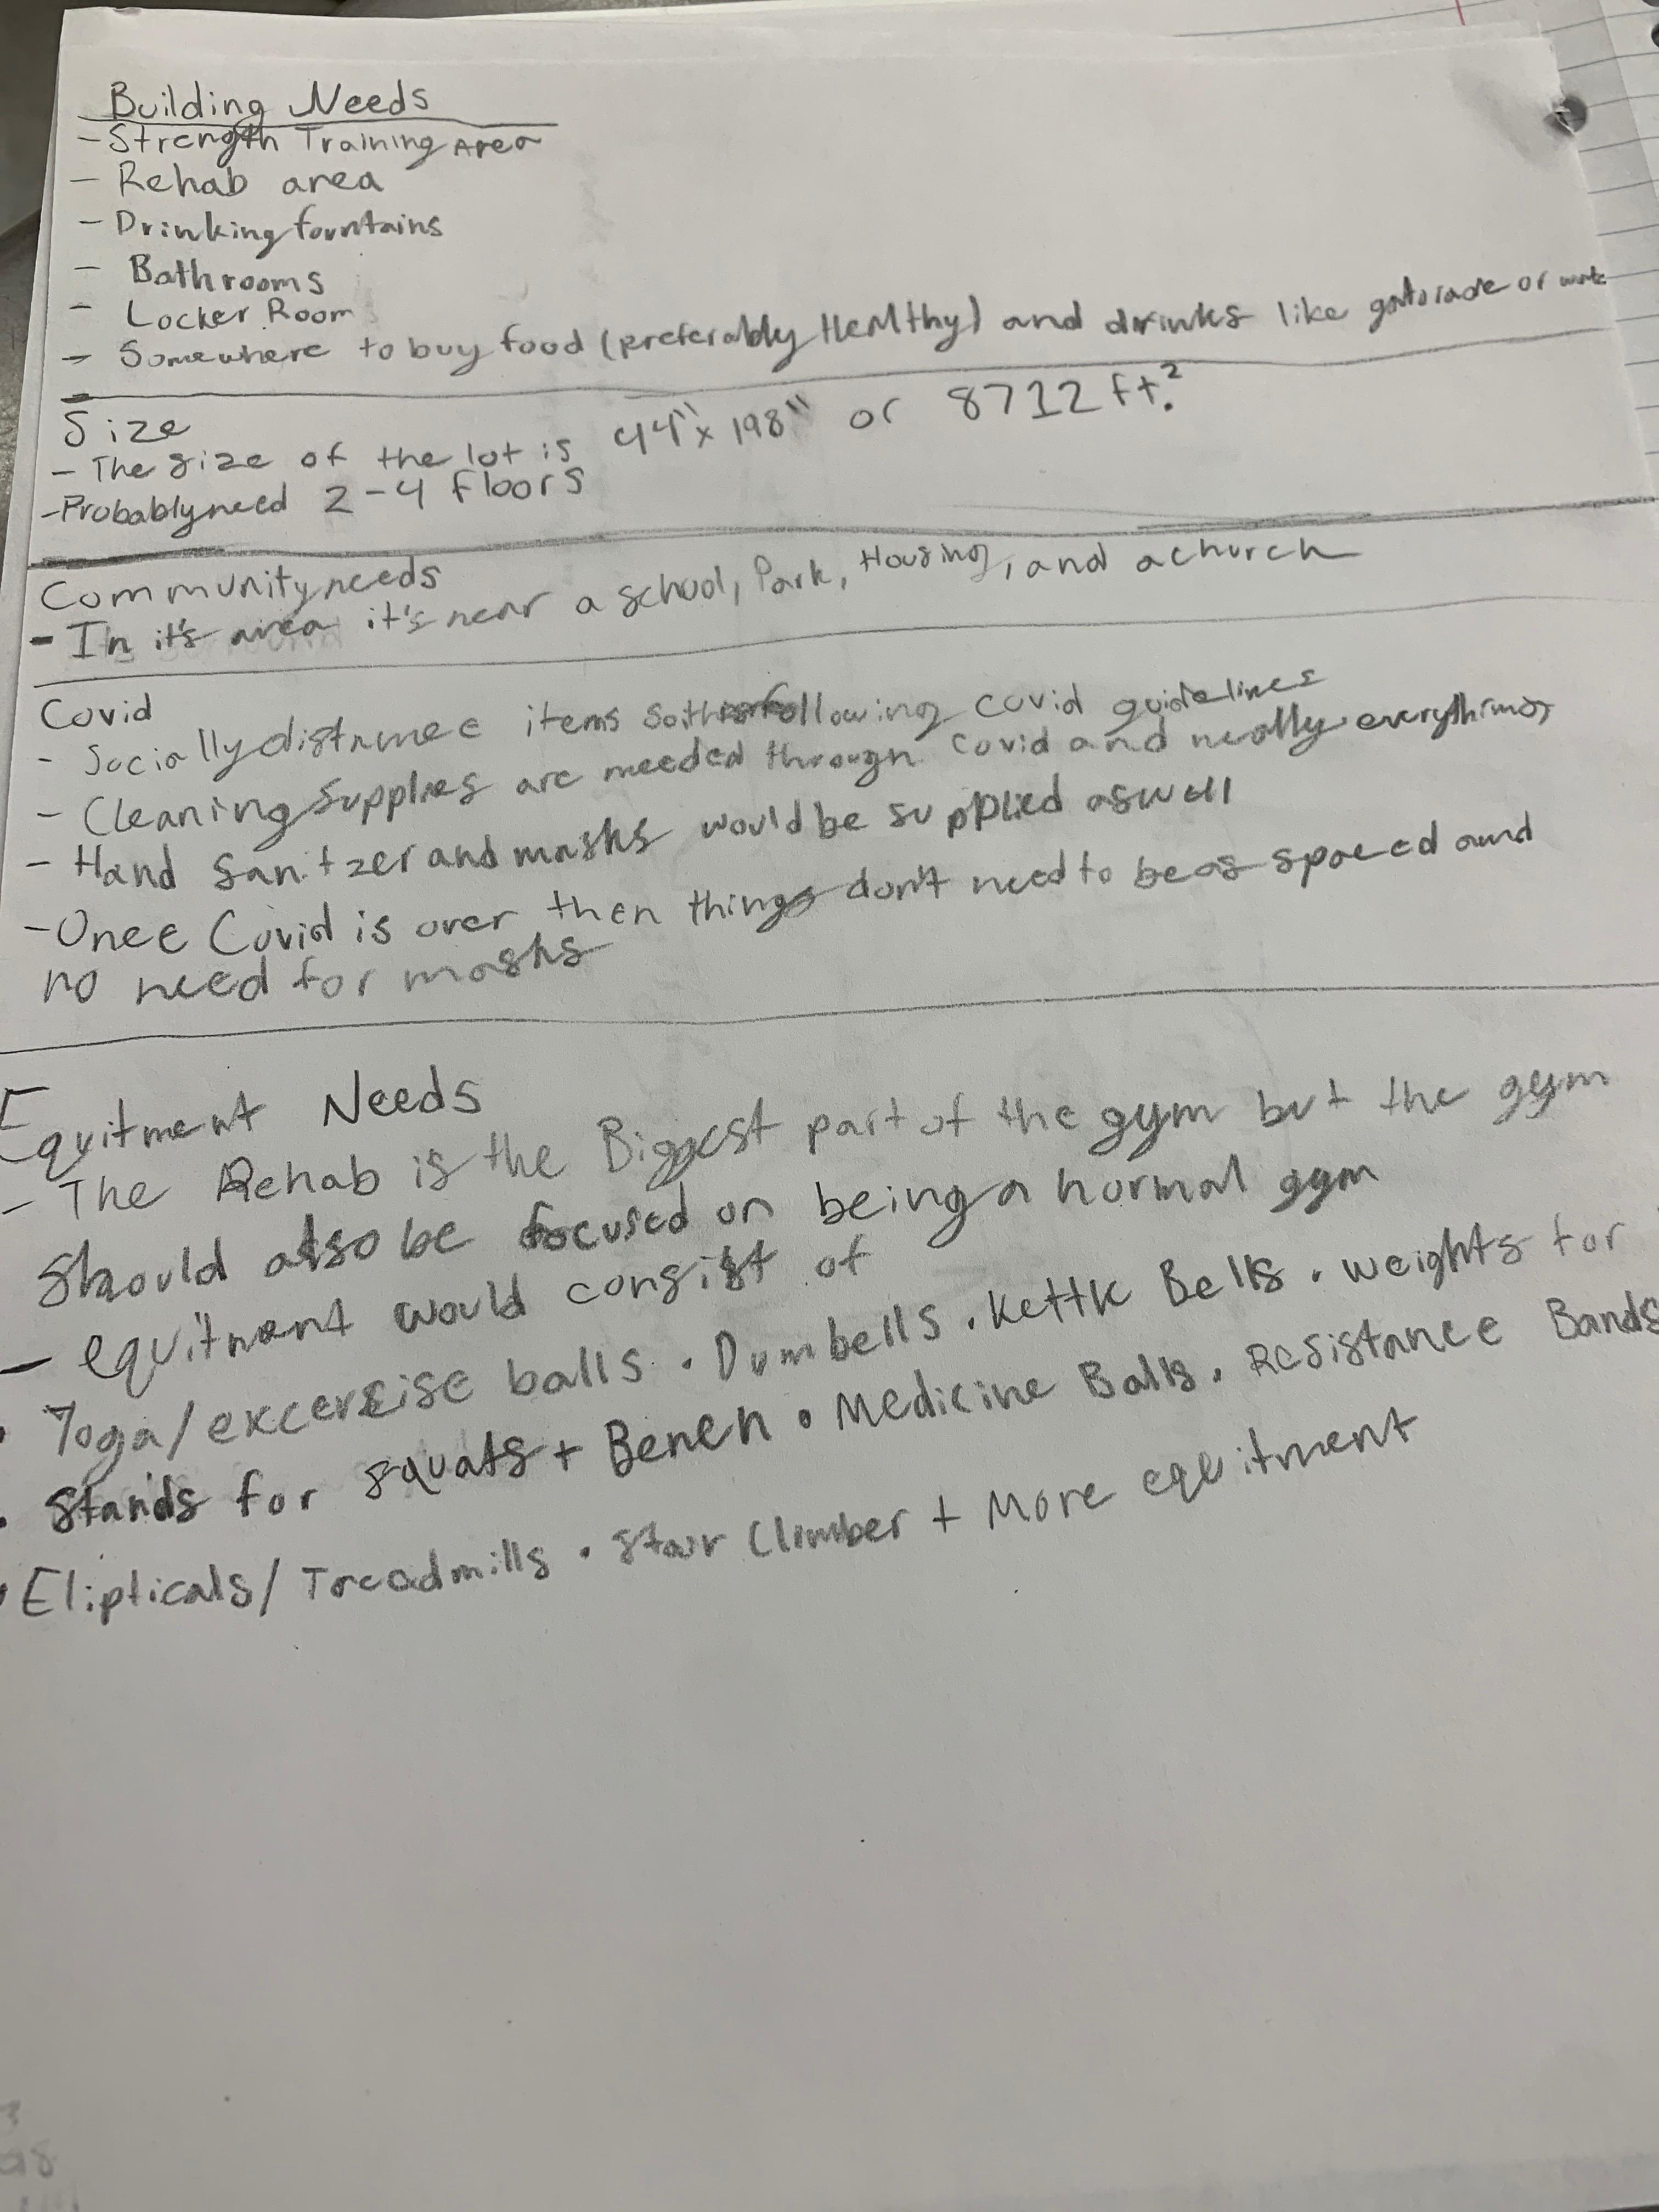 Building Needs
- Strength Training Area
- Rehab area
- Drinking fountains
- Bathrooms
- Locker Room
- Somewhere to buy food (preferably Healthy) and drinks like gatorade or
Size
- The size of the lot is 44" x 198" or 8712 ft.²
- Probably need 2-4 floors
Community needs
- In it's area it's near a school, Park, Housing, and a church
Covid
- Socially distance items following covid guidelines
- Cleaning supplies are needed through Covid and really everything
- Hand sanitzer and masks would be supplied aswell
- Once Covid is over then things don't need to be as spaced and
no need for masks
Equitment Needs
- The Rehab is the Biggest part of the gym but the gym
should also be focused on being a normal gym
- equitment would consist of
• Yoga/excersise balls • Dumbells • Kettle Bells • weights for
• Stands for squats + Bench • Medicine Balls • Resistance Bands
• Elipticals/Treadmills • Stair Climber + More equitment
3
98